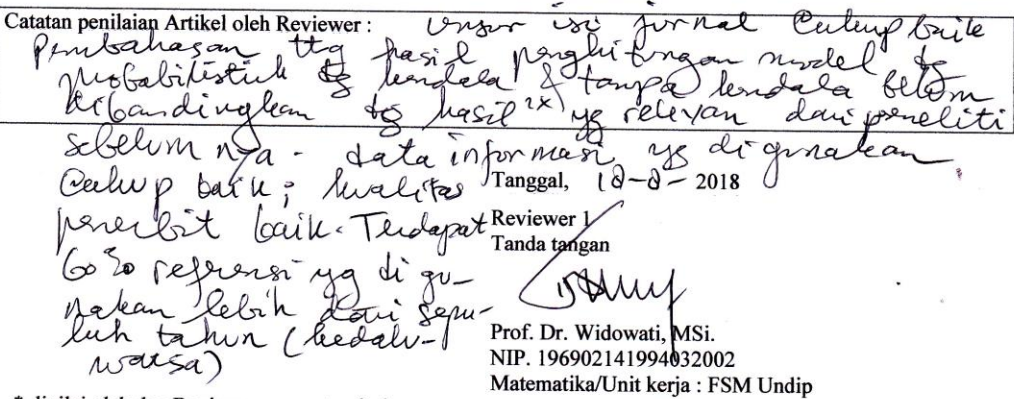 Catatan penilaian Artikel oleh Reviewer : Unsur isi jurnal Cukup baik
Pembahasan ttg hasil penghitungan model dg
probabilistik dg kendala & tanpa kendala belum
dibandingkan dg hasil 2x) yg relevan dari peneliti
sebelum nya. data informasi yg digunakan
Cukup baik; kualitas
Tanggal, 2018
penerbit baik. Terdapat
Reviewer 1
Tanda tangan
60 % referensi yg digu-
nakan lebih dari sepu-
luh tahun (kedalu-
warsa)
Prof. Dr. Widowati, MSi.
NIP. 196902141994032002
Matematika/Unit kerja : FSM Undip